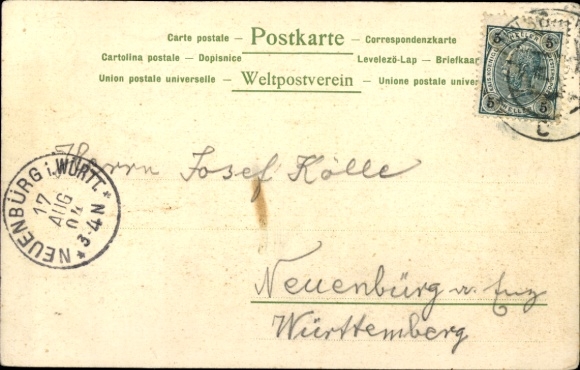 Carte postale — Postkarte — Correspondenzkarte
Cartolina postale — Dopisnice Levelező-Lap — Briefkaar
Union postale universelle — Weltpostverein — Unione postale univer
5 5
5 5
HELLER
NEUENBÜRG i. WÜRTT.
17
AUG
04
3-4 N
Herrn Josef Kölle
Neuenbürg a. Enz
Württemberg